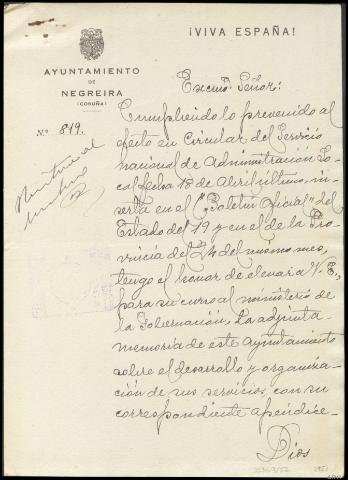 ¡VIVA ESPAÑA!
AYUNTAMIENTO
DE
NEGREIRA
(CORUÑA)
N.º 819.
Excmo. Señor:
Cumpliendo lo prevenido al
efecto en Circular del Servicio
nacional de Administración Lo-
cal fecha 18 de Abril último, in-
serta en el "Boletín Oficial" del
Estado del 19 y en el de la Pro-
vincia del 24 del mismo mes,
tengo el honor de elevar a V. E.,
para su curso al ministerio de
la Gobernación, la adjunta
memoria de este Ayuntamiento
sobre el desarrollo y organiza-
ción de sus servicios, con su
correspondiente apéndice.
Dios